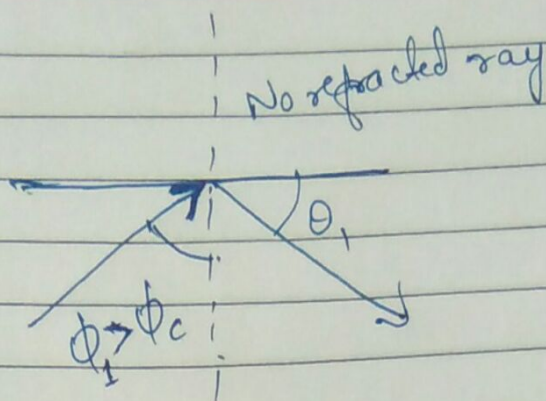 No refracted ray
θ₁
ϕ₁>ϕc